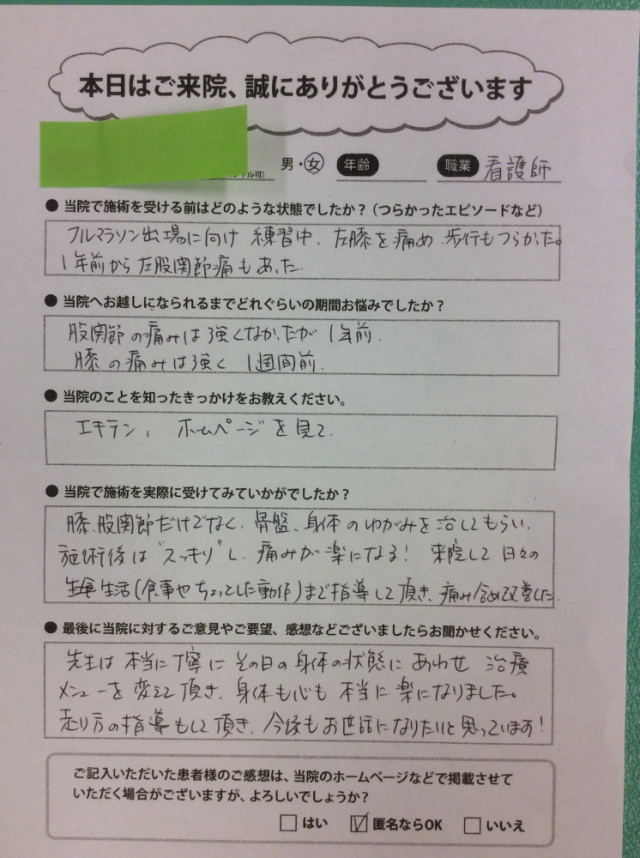 本日はご来院、誠にありがとうございます
男・女 年齢 職業 看護師
● 当院で施術を受ける前はどのような状態でしたか？（つらかったエピソードなど）
フルマラソン出場に向け 練習中、左膝を痛め 歩行もつらかった。
1年前から左股関節痛もあった。
● 当院へお越しになられるまでどれぐらいの期間お悩みでしたか？
股関節の痛みは強くなかったが 1年前.
膝の痛みは強く 1週間前.
● 当院のことを知ったきっかけをお教えください。
エキテン、ホームページを見て.
● 当院で施術を実際に受けてみていかがでしたか？
膝、股関節だけでなく、骨盤、身体のゆがみを治してもらい、
施術後は"スッキリ"し、痛みが楽になる! 来院して日々の
生活(食事やちょっとした動作)まで指導して頂き、痛み含め改善した.
● 最後に当院に対するご意見やご要望、感想などございましたらお聞かせください。
先生は本当に丁寧にその日の身体の状態にあわせ 治療
メニューを変えて頂き、身体も心も本当に楽になりました。
走り方の指導もして頂き、今後もお世話になりたいと思っています!
ご記入いただいた患者様のご感想は、当院のホームページなどで掲載させて
いただく場合がございますが、よろしいでしょうか？
□ はい ☑ 匿名ならOK □ いいえ